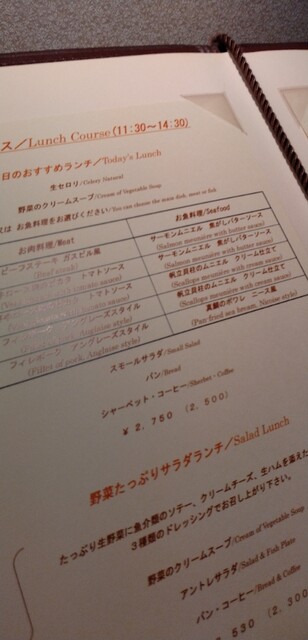 ス／Lunch Course(11:30～14:30)
日のおすすめランチ／Today's Lunch
生セロリ／Celery Natural
野菜のクリームスープ／Cream of Vegetable Soup
又は お魚料理をお選びください／You can choose the main dish, meat or fish
お肉料理/Meat
お魚料理/Seafood
ビーフステーキ ガスビル風
(Beef steak)
トマトソース
トマトソース
アングレーズスタイル
フィレポーク アングレーズスタイル
(Fillet of pork, Anglaise style)
サーモンムニエル 焦がしバターソース
(Salmon meuniere with butter sauce)
サーモンムニエル 焦がしバターソース
(Salmon meuniere with butter sauce)
帆立貝柱のムニエル クリーム仕立て
(Scallops meuniere with cream sauce)
帆立貝柱のムニエル クリーム仕立て
(Scallops meuniere with cream sauce)
真鯛のポワレ ニース風
(Pan-fried sea bream, Nicoise style)
スモールサラダ/Small Salad
パン/Bread
シャーベット・コーヒー/Sherbet・Coffee
￥2,750 (2,500)
野菜たっぷりサラダランチ／Salad Lunch
たっぷり生野菜に魚介類のソテー、クリームチーズ、生ハムを添えた
3種類のドレッシングでお召し上がり下さい。
野菜のクリームスープ/Cream of Vegetable Soup
アントレサラダ/Salad & Fish Plate
パン・コーヒー/Bread & Coffee
530 (2,300